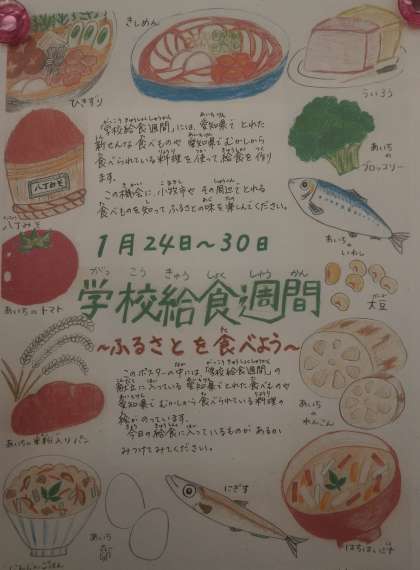 きしめん
ひきずり
ういろう
「学校給食週間」には、愛知県でとれた
新せんな食べものや愛知県でむかしから
食べられている料理を使って給食を作り
ます。
この機会に、小牧市やその周辺でとれる
食べものを知ってふるさとの味を楽しんでください。
八丁みそ
八丁みそ
あいちの
ブロッコリー
あいちの
いわし
1月24日~30日
がっこうきゅうしょくしゅうかん
学校給食週間
~ふるさとを食べよう~
あいちのトマト
大豆
このポスターの中には、「学校給食週間」の
献立に入っている愛知県でとれた食べものや
愛知県でむかしから食べられている料理の
絵がのっています。
今日の給食に入っているものがあるか
みつけてみてください。
あいちの米粉入りパン
あいちの
れんこん
あいち
にぎす
はちはいじる